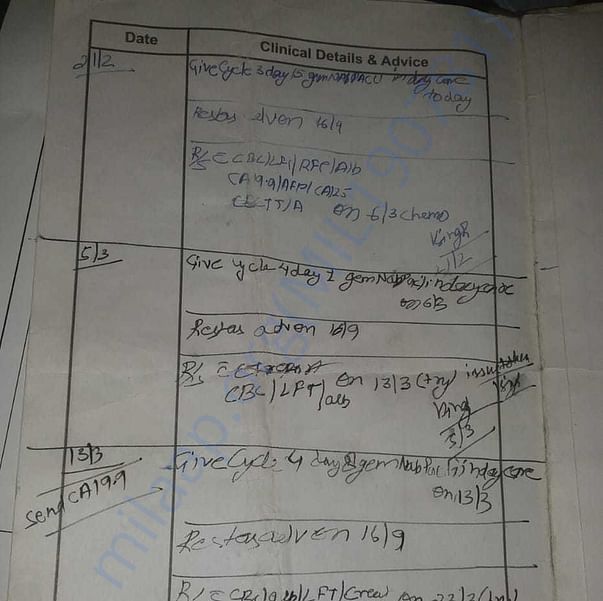 Date
Clinical Details & Advice
21/2
Give Cycle 3 day 15 gem NabPacli in day care
today
Rest as adv on 16/9
R/s C CBC/LFT/RFT/Alb
CA19.9/AFP/CA125
on 6/3 chemo
21/2
5/3
Give cycle 4 day 1 gem NabPacli in day care
on 6/3
Rest as adv on 16/9
R/s C
CBC/LFT/alb on 13/3
5/3
13/3
send CA19.9
Give Cycle 4 day 8 gem NabPacli in day care
on 13/3
Rest as adv on 16/9
R/s C CBC/alb/LFT/Creat on
milaap.org